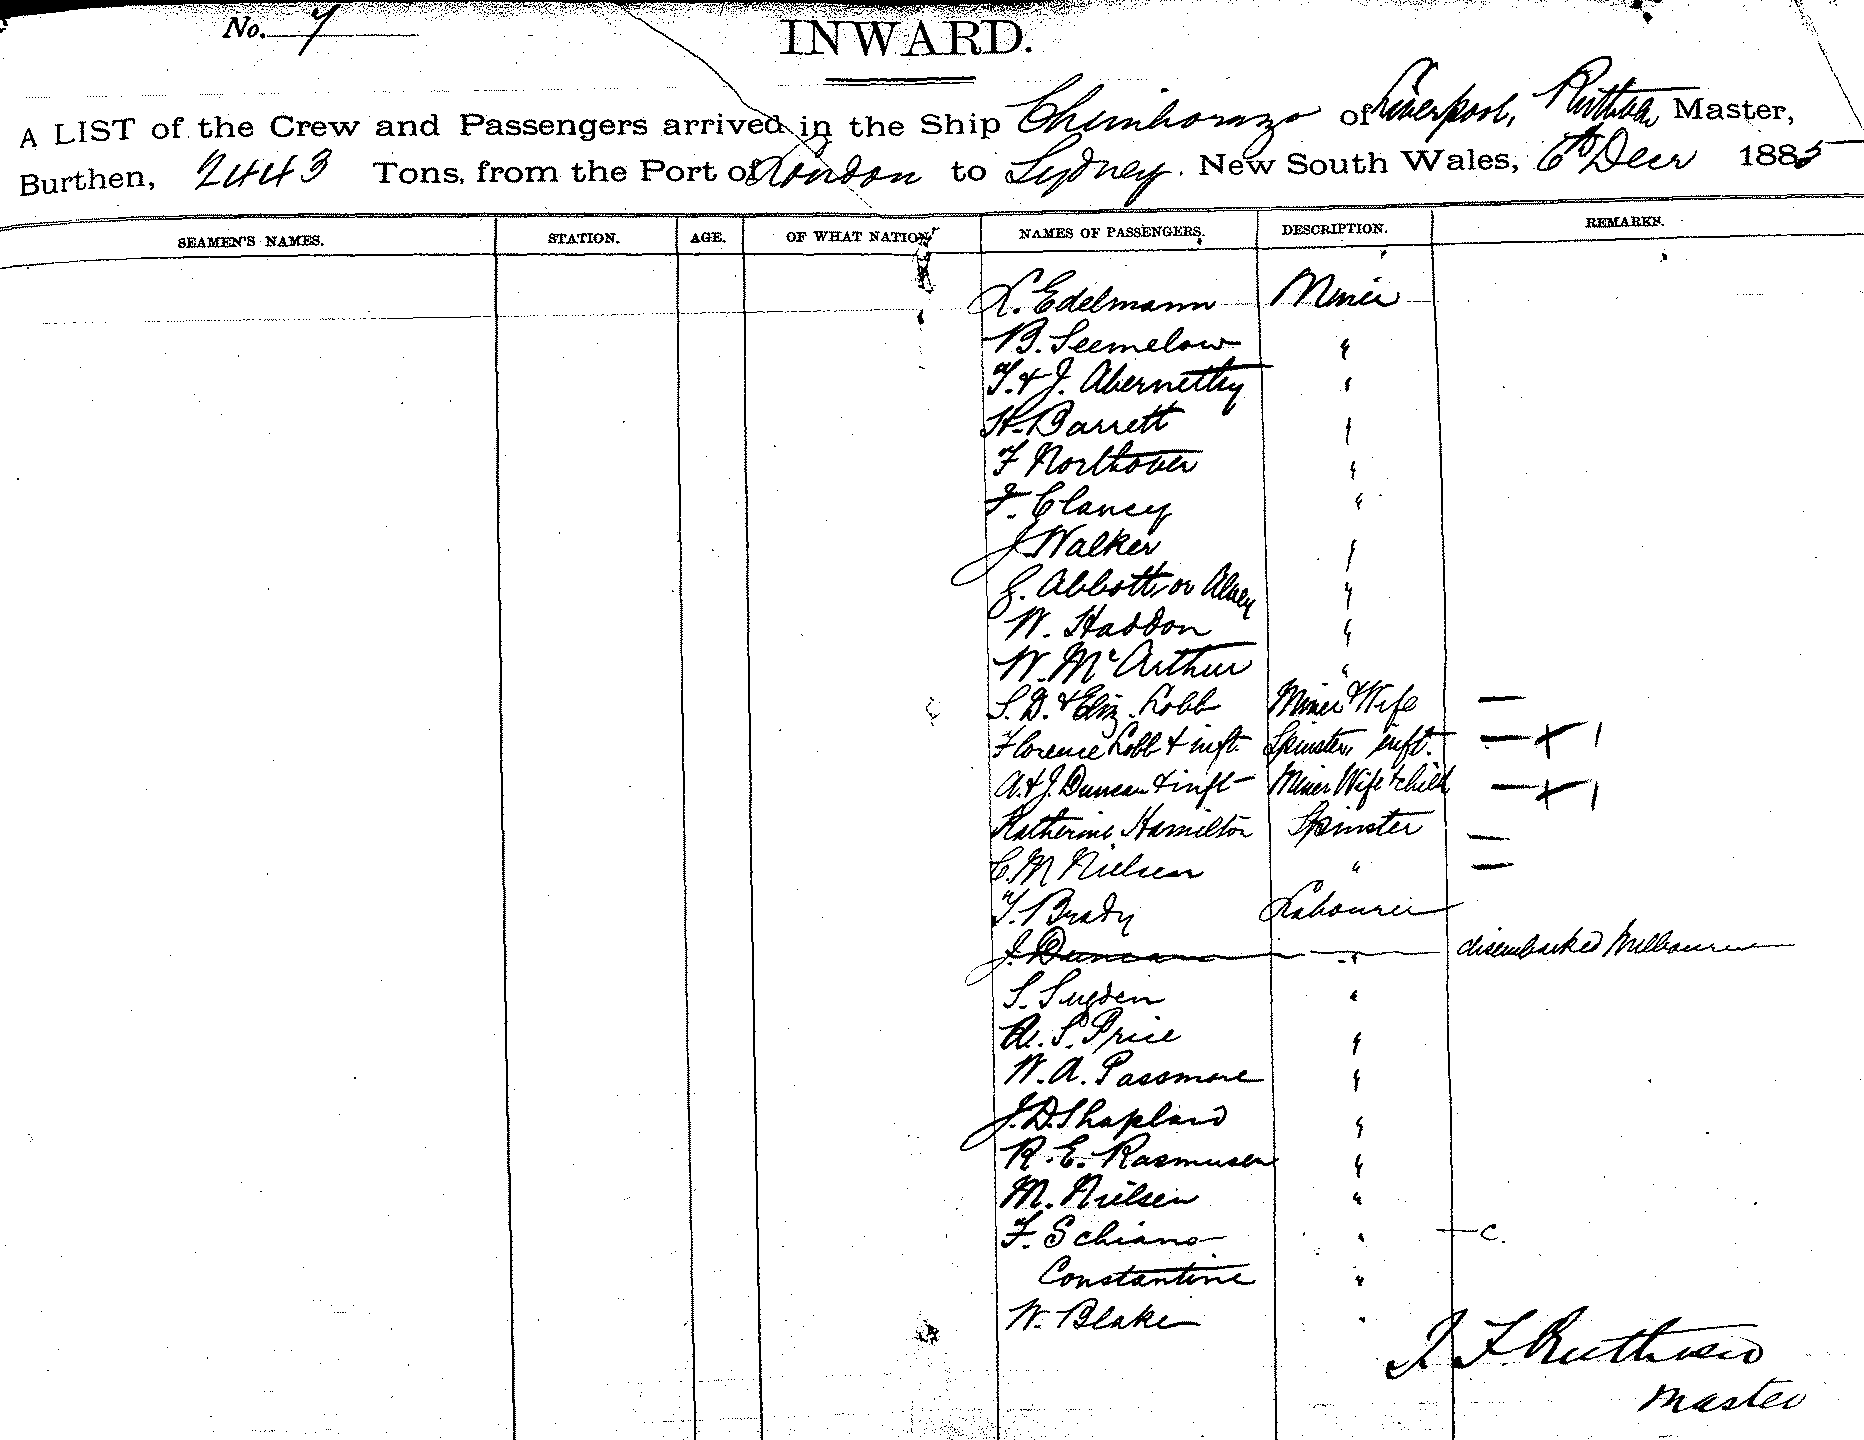 No. 7
INWARD.
A LIST of the Crew and Passengers arrived in the Ship Chimborazo of Liverpool, Ruthven Master,
Burthen, 2443 Tons, from the Port of London to Sydney. New South Wales, 6th Decr 1885
SEAMEN'S NAMES. STATION. AGE. OF WHAT NATION. NAMES OF PASSENGERS. DESCRIPTION. REMARKS.
L. Edelmann Miner
B. Seemelow "
T. & J. Abernethy "
H. Barrett "
F Northover "
F. Clancy "
J Walker "
G. Abbott, or "
W. Haddon "
W. McArthur "
S. D. & Eliz. Lobb Miner & Wife —
Florence Lobb & inft. Spinster, inft. — x 1
A. & J. Duncan & inft Miner Wife & child — x 1
Katherine Hamilton Spinster —
C. M Nielsen " —
T. Brady Labourer
J. Duncan " disembarked Melbourne
S. Sugden "
A. S. Price "
W. A. Passmore "
J. D. Shapland "
R. E. Rasmusen "
M. Nielsen "
F. Schiano " — C.
Constantine "
W. Blake "
J. F. Ruthven
Master